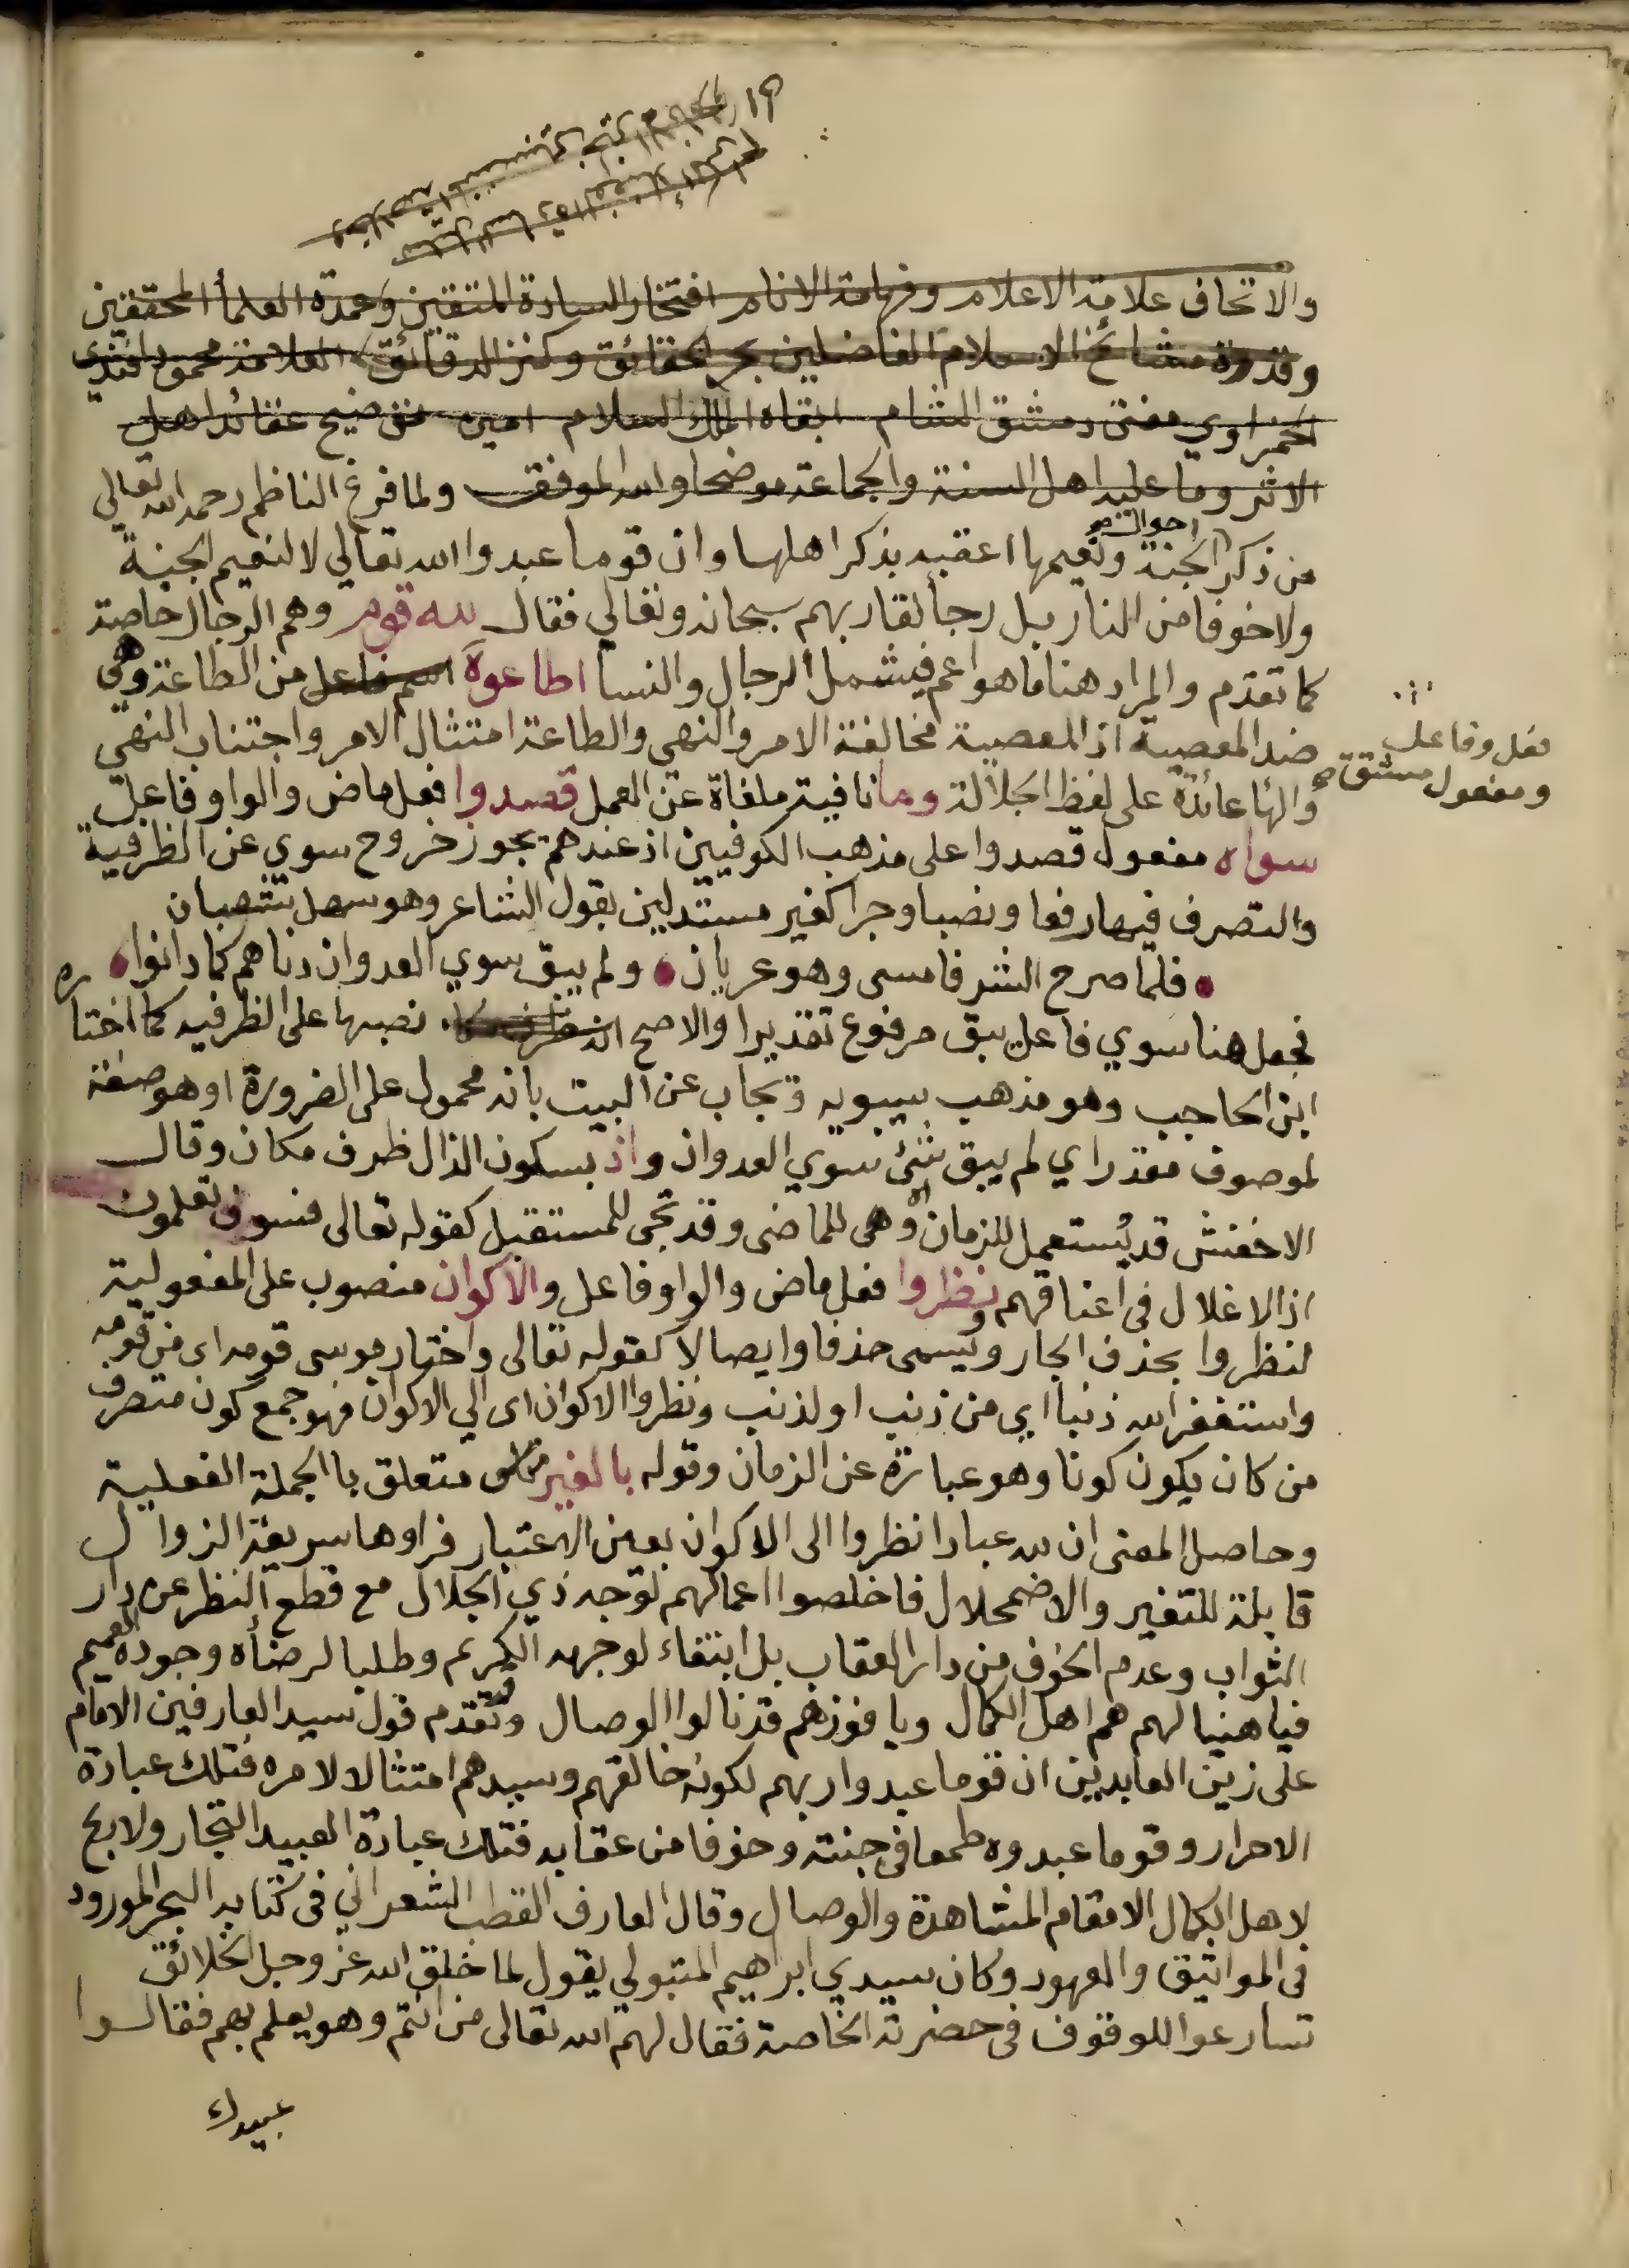 والاتحاف علامة الاعلام وفهامة الانام افتخار السادة المتقين وعمدة العلمأ المحققين
وقدوة مشائخ الاسلام الفاضلين بحر الحقائق وكنز الدقائق العلامة محمود افندي
الحمزاوي مفتى دمشق الشام ابقاه الملك السلام امين عقائد اهل
الاثر وما عليه اهل السنة والجماعة موضحا والله الموفق ولما فرغ الناظم رحمه الله تعالى
من ذكر احوال الجنة ونعيمها اعقبه بذكر اهلها وان قوما عبدوا الله تعالي لا لنعيم الجنة
ولا خوفا من النار بل رجأ لقا ربهم سبحانه وتعالي فقال لله قوم وهم الرجال خاصة
كما تقدم والمراد هنا ما هو اعم فيشمل الرجال والنسا اطاعوه اسم فاعل من الطاعة وهي
فعل وفاعل
ومفعول مشتق صح
ضد المعصية اذ المعصية مخالفة الامر والنهى والطاعة امتثال الامر واجتناب النهى
والهأ عائدة على لفظ الجلالة وما نافية ملغاة عن العمل قصدوا فعل ماض والواو فاعل
سواه مفعول قصدوا على مذهب الكوفيين اذ عندهم يجوز خروج سوي عن الظرفية
والتصرف فيها رفعا ونصبا وجرا كغير مستدلين بقول الشاعر وهو سهل بن شيبان
فلما صرح الشر فامسى وهو عريان ولم يبق سوي العدوان دناهم كما دانوا
فجعل هنا سوي فاعل يبق مرفوع تقديرا والاصح نصبها على الظرفيه كما اختاره
ابن الحاجب وهو مذهب سيبويه ويجاب عن البيت بانه محمول على الضرورة او هو صفة
لموصوف مقدر اي لم يبق شئ سوي العدوان واذ بسكون الذال ظرف مكان وقال
الاخفش قد يُستعمل للزمان وهى للماضى وقد تجى للمستقبل كقوله تعالى فسوف تعلمون
اذ الاغلال فى اعناقهم نظروا فعل ماض والواو فاعل والاكوان منصوب على المفعولية
لنظروا بحذف الجار ويسمى حذفا وايصالا كقوله تعالى واختار موسى قومه اى من قومه
واستغفر الله ذنبا اي من ذنب او لذنب ونظروا الاكوان اى الي الاكوان فهو جمع كون متصرف
من كان يكون كونا وهو عبارة عن الزمان وقوله بالغير متعلق با الجملة الفعلية
وحاصل المعنى ان لله عبادا نظروا الى الاكوان بعين الاعتبار فراوها سريعة الزوال
قابلة للتغير والاضمحلال فاخلصوا اعمالهم لوجه ذي الجلال مع قطع النظر عن دار
الثواب وعدم الخوف من دار العقاب بل ابتغاء لوجهه الكريم وطلبا لرضأه وجوده العميم
فيا هنيا لهم هم اهل الكمال ويا فوزهم قد نالوا الوصال وقد تقدم قول سيد العارفين الامام
على زين العابدين ان قوما عبدوا ربهم لكونه خالقهم وسيدهم امتثالا لامره فتلك عبادة
الاحرار وقوما عبدوه طمعا في جنته وخوفا من عقابه فتلك عبادة العبيد التجار ولا ربح
لاهل الكمال الا مقام المشاهدة والوصال وقال العارف القطب الشعراني فى كتابه البحر المورود
فى المواثيق والعهود وكان سيدي ابراهيم المتبولي يقول لما خلق الله عز وجل الخلائق
تسارعوا للوقوف فى حضرته الخاصة فقال لهم الله تعالى من انتم وهو يعلم بهم فقالوا
عبيدك